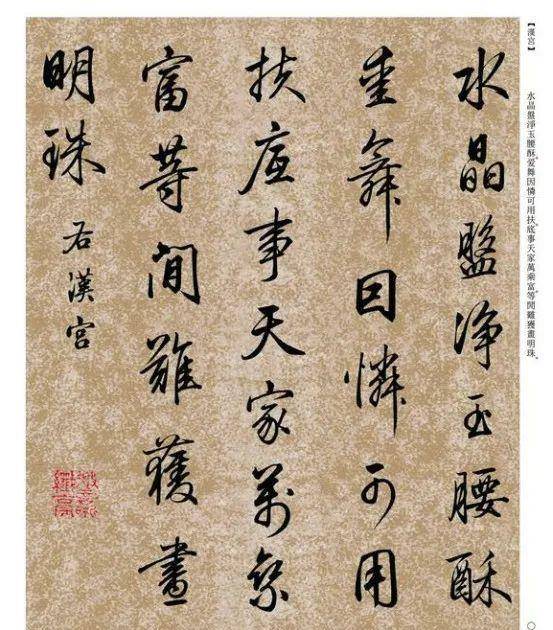 【漢宫】
水晶盤淨玉腰酥。爱舞因憐可用扶。底事天家萬乘富。等閒難獲畫明珠。
水晶盤净玉腰酥
舞因憐可用
扶底事天家萬乘
富等閒難獲畫
明珠
右漢宫